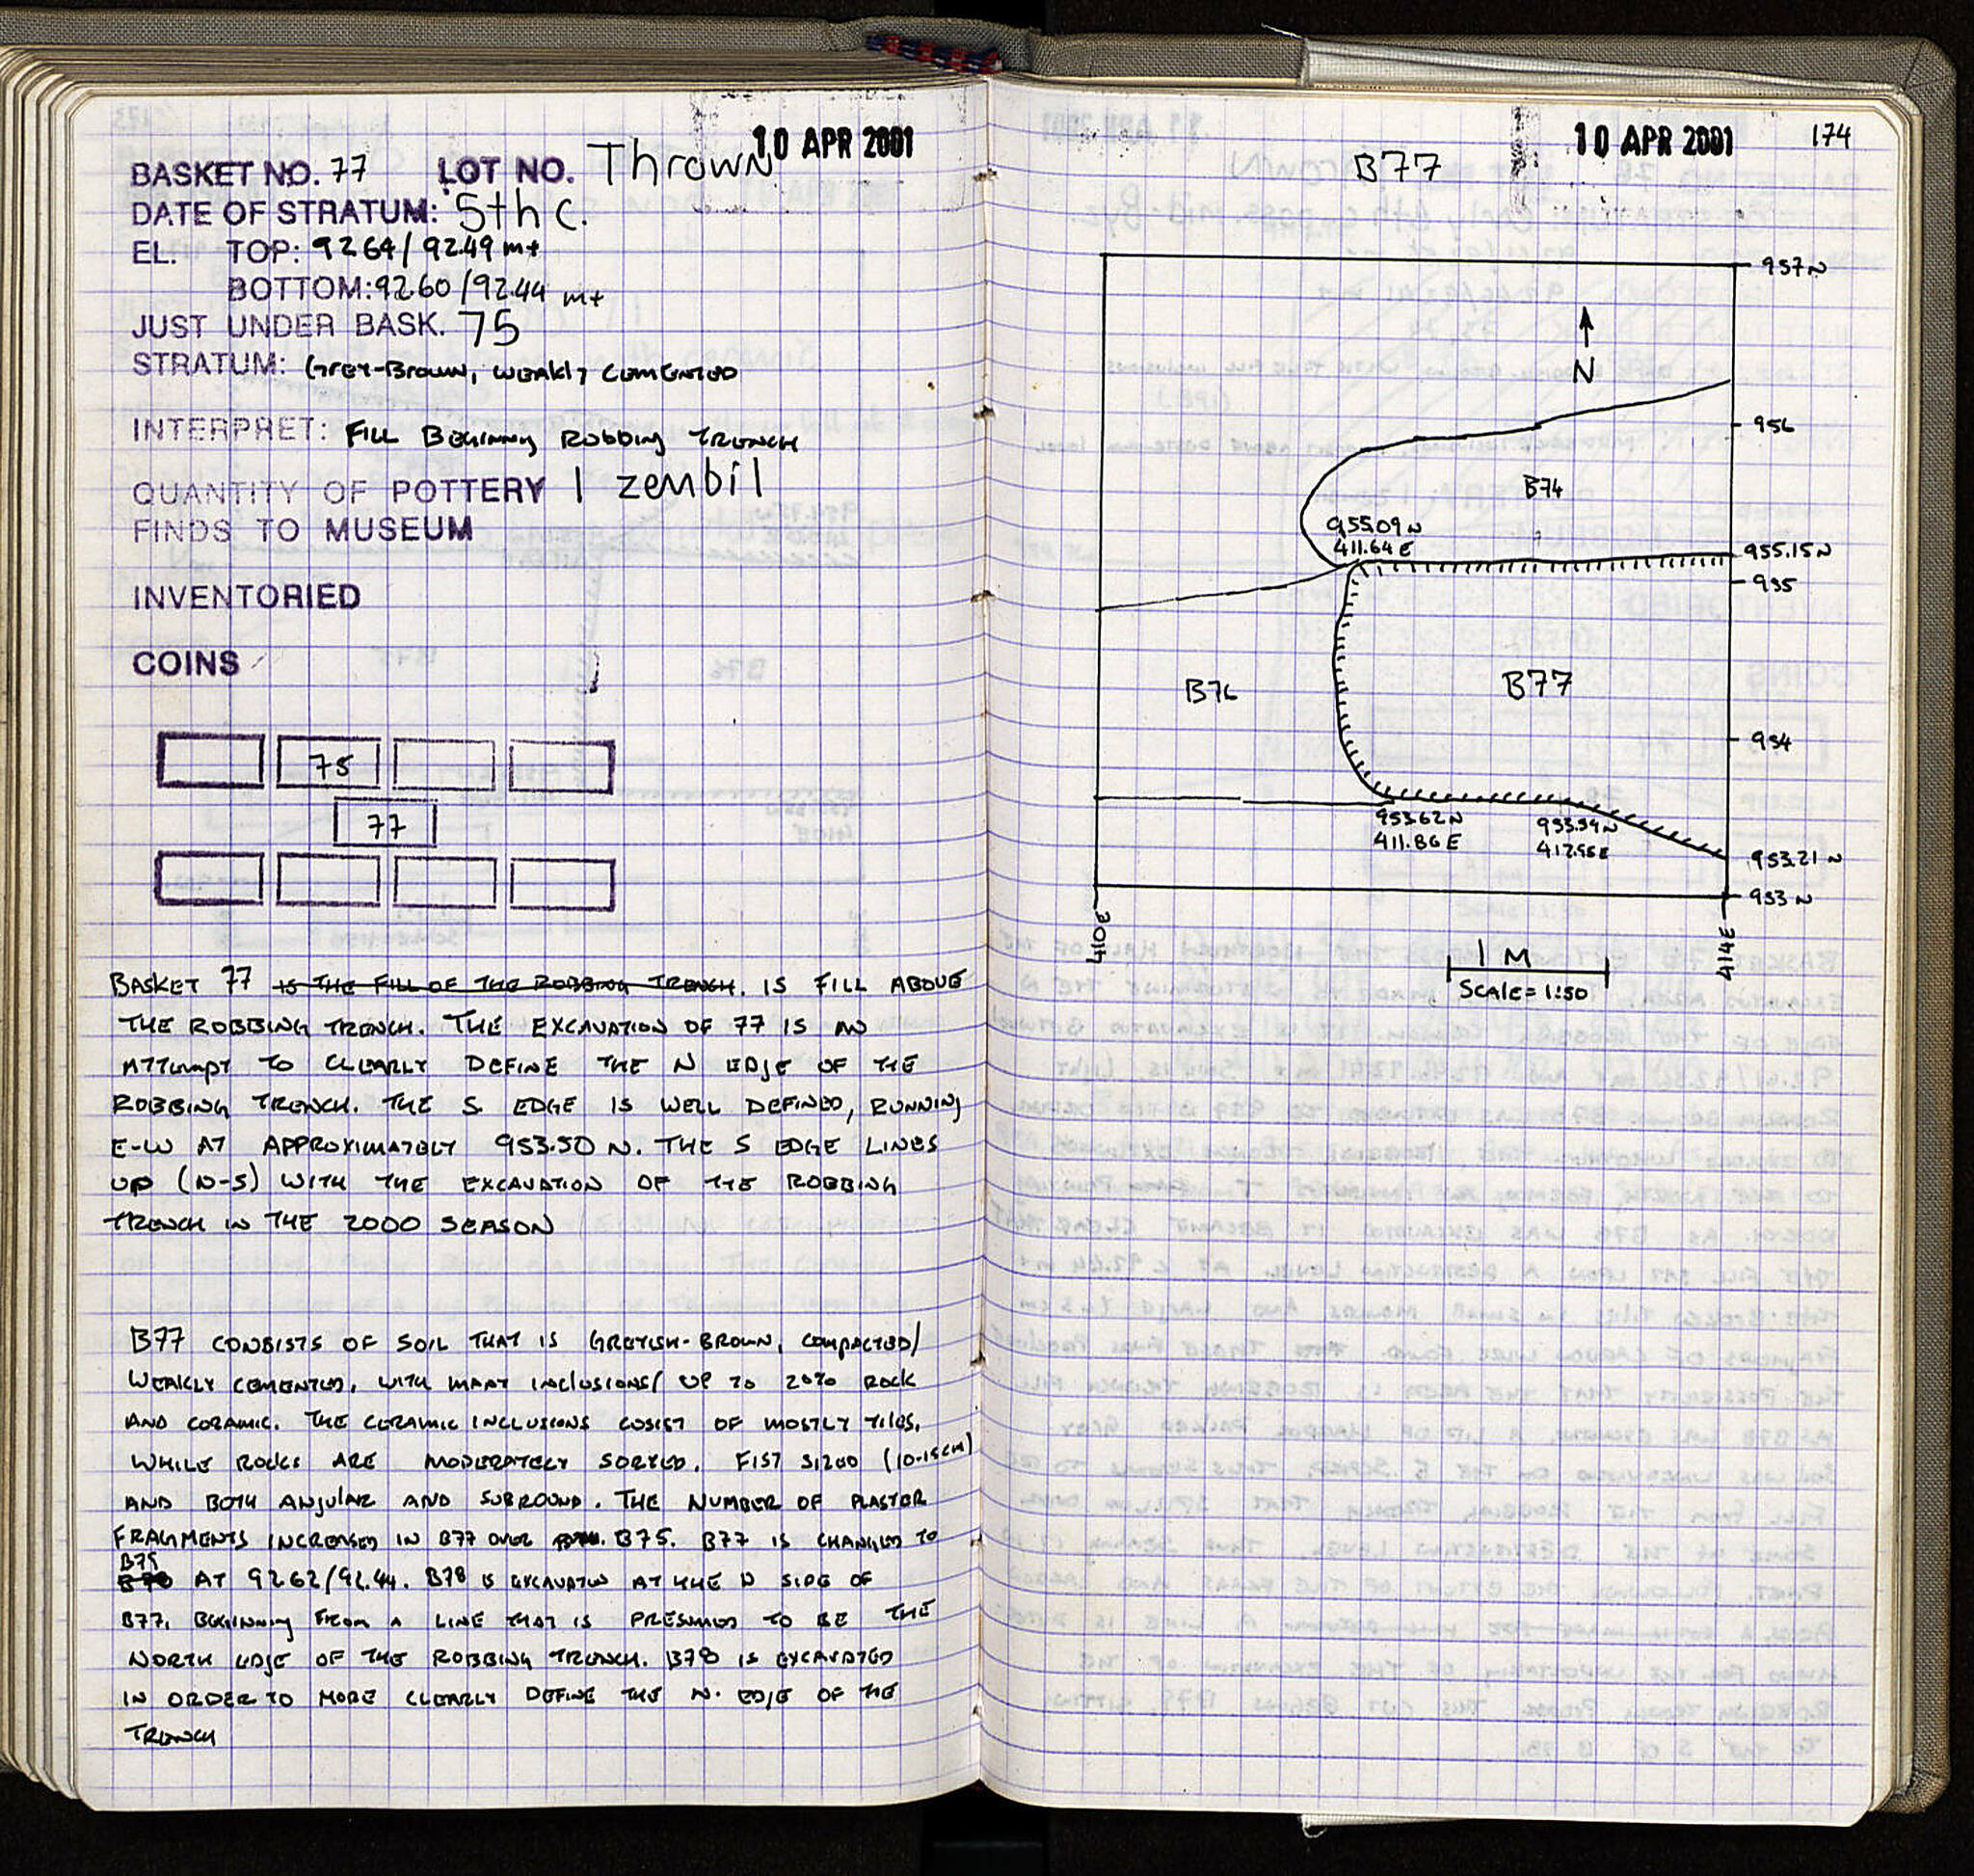 10 APR 2001
BASKET NO. 77 LOT NO. Thrown
DATE OF STRATUM: 5th c.
EL. TOP: 92.64/92.49 m+
BOTTOM: 92.60/92.44 m+
JUST UNDER BASK. 75
STRATUM: Grey-Brown, weakly cemented
INTERPRET: Fill Beginning Robbing Trench
QUANTITY OF POTTERY 1 zembil
FINDS TO MUSEUM
INVENTORIED
COINS
75
77
BASKET 77 IS THE FILL OF THE ROBBING TRENCH. IS FILL ABOVE
THE ROBBING TRENCH. THE EXCAVATION OF 77 IS AN
ATTEMPT TO CLEARLY DEFINE THE N EDGE OF THE
ROBBING TRENCH. THE S. EDGE IS WELL DEFINED, RUNNING
E-W AT APPROXIMATELY 953.50 N. THE S EDGE LINES
UP (N-S) WITH THE EXCAVATION OF THE ROBBING
TRENCH IN THE 2000 SEASON
B77 CONSISTS OF SOIL THAT IS GREYISH-BROWN, COMPACTED/
WEAKLY CEMENTED, WITH MANY INCLUSIONS/ UP TO 20% ROCK
AND CERAMIC. THE CERAMIC INCLUSIONS COSIST OF MOSTLY TILES,
WHILE ROCKS ARE MODERATELY SORTED, FIST SIZED (10-15CM)
AND BOTH ANGULAR AND SUBROUND. THE NUMBER OF PLASTER
FRAGMENTS INCREASED IN B77 OVER B75. B77 IS CHANGED TO
B75
AT 92.62/92.44. B78 IS EXCAVATED AT THE N SIDE OF
B77, BEGINNING FROM A LINE THAT IS PRESUMED TO BE THE
NORTH EDGE OF THE ROBBING TRENCH. B78 IS EXCAVATED
IN ORDER TO MORE CLEARLY DEFINE THE N. EDGE OF THE
TRENCH
10 APR 2001 174
B77
957 N
N
956
B74
955.09 N
411.64 E
955.15 N
955
B76
B77
954
953.62 N
411.86 E
953.54 N
412.95 E
953.21 N
953 N
410 E
414 E
1 M
SCALE = 1:50